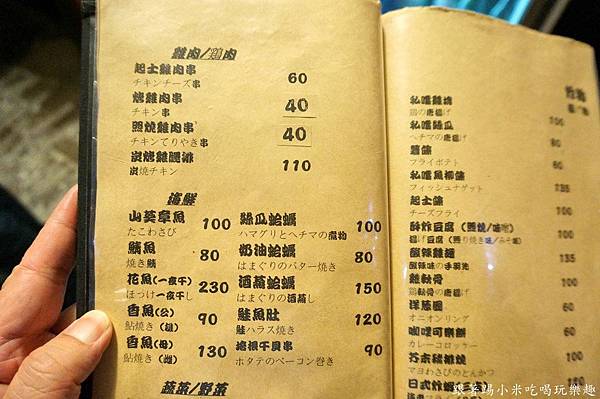 雞肉/鶏肉
起士雞肉串 60
チキンチーズ串
烤雞肉串 40
チキン串
照燒雞肉串 40
チキンてりやき串
炭烤雞腿排 110
炭焼チキン
海鮮
山葵章魚 100
たこわさび
鯖魚 80
焼き鯖
花魚(一夜干) 230
ほっけ一夜干し
香魚(公) 90
鮎焼き(雄)
香魚(母) 130
鮎焼き(雌)
絲瓜蛤蠣 100
ハマグリとヘチマの煮物
奶油蛤蠣 80
はまぐりのバター焼き
酒蒸蛤蠣 150
はまぐりの酒蒸し
鮭魚肚 120
鮭ハラス焼き
培根干貝串 90
ホタテのベーコン巻き
蔬菜/野菜
炸物
私嚐雞塊 100
鶏の唐揚げ
私嚐絲瓜 100
ヘチマの唐揚げ
薯條 60
フライポテト
私嚐魚柳條 135
フィッシュナゲット
起士條
チーズフライ
酥炸豆腐(照燒/味噌)
揚げ豆腐(照り焼き味/みそ味)
酸辣雞翅 135
酸辣味の手羽先
雞軟骨 100
軟骨の唐揚げ
洋蔥圈 60
オニオンリング
咖哩可樂餅 60
カレーコロッケ
芥末豬排燒
マヨわさびのとんかつ
跟著踢小米吃喝玩樂趣